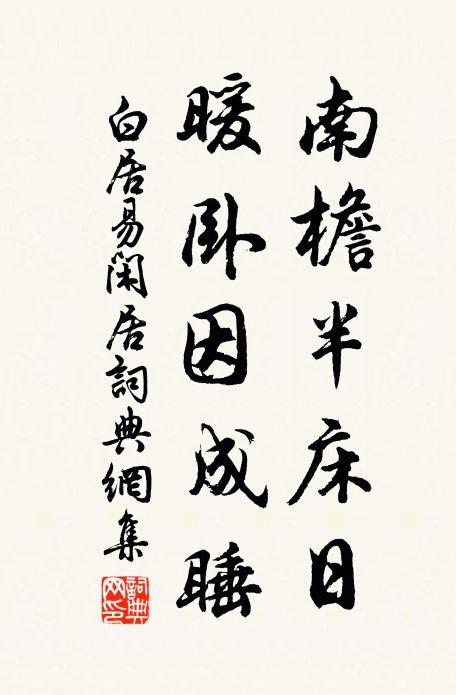 南檐半床日
暖卧因成睡
白居易閑居詞典網集
詞典网印